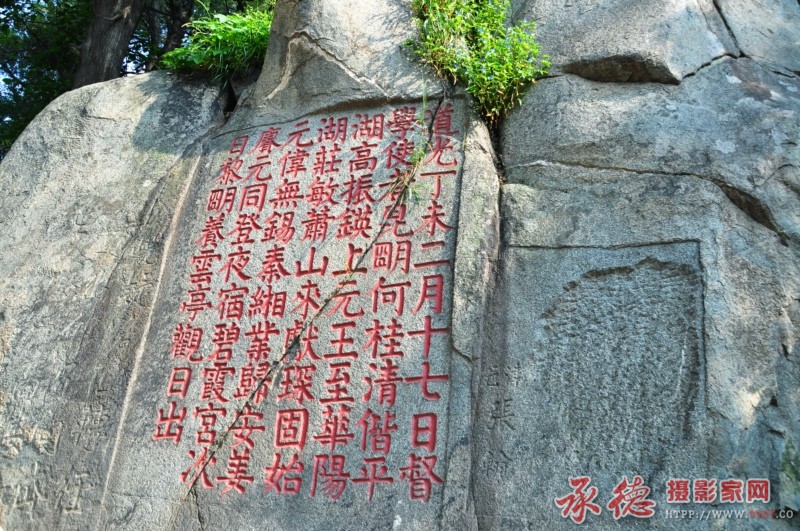 道光丁未二月十七日督
學使者昆明何桂清偕平
湖高振鍈上元王至華陽
湖莊敏蕭山來獻琛固始
元偉無錫秦緗業歸安姜
廌元同登夜宿碧霞宮次
日黎明養雲亭觀日出
張
承德摄影家网